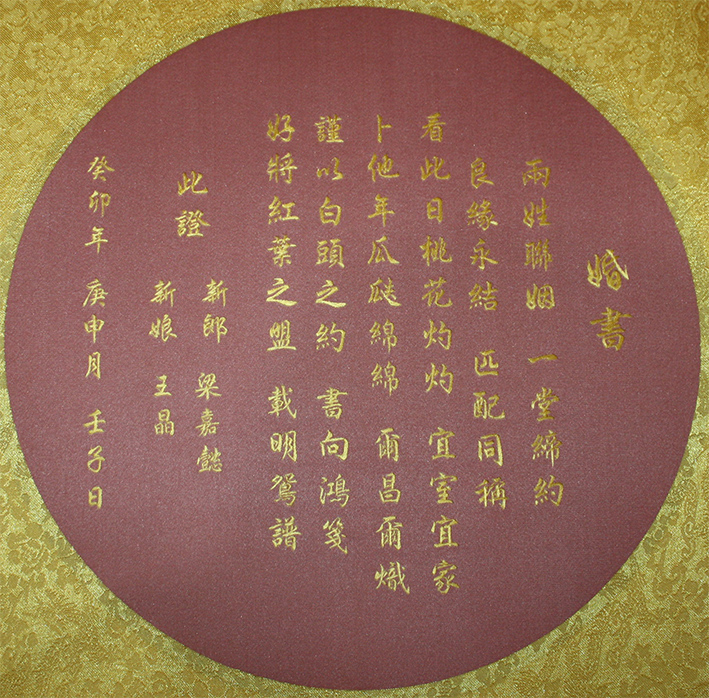 婚書
兩姓聯姻 一堂締約
良緣永結 匹配同稱
看此日桃花灼灼 宜室宜家
卜他年瓜瓞綿綿 爾昌爾熾
謹以白頭之約 書向鴻箋
好將紅葉之盟 載明鴛譜
此證
新郎 梁嘉懿
新娘 王晶
癸卯年 庚申月 壬子日